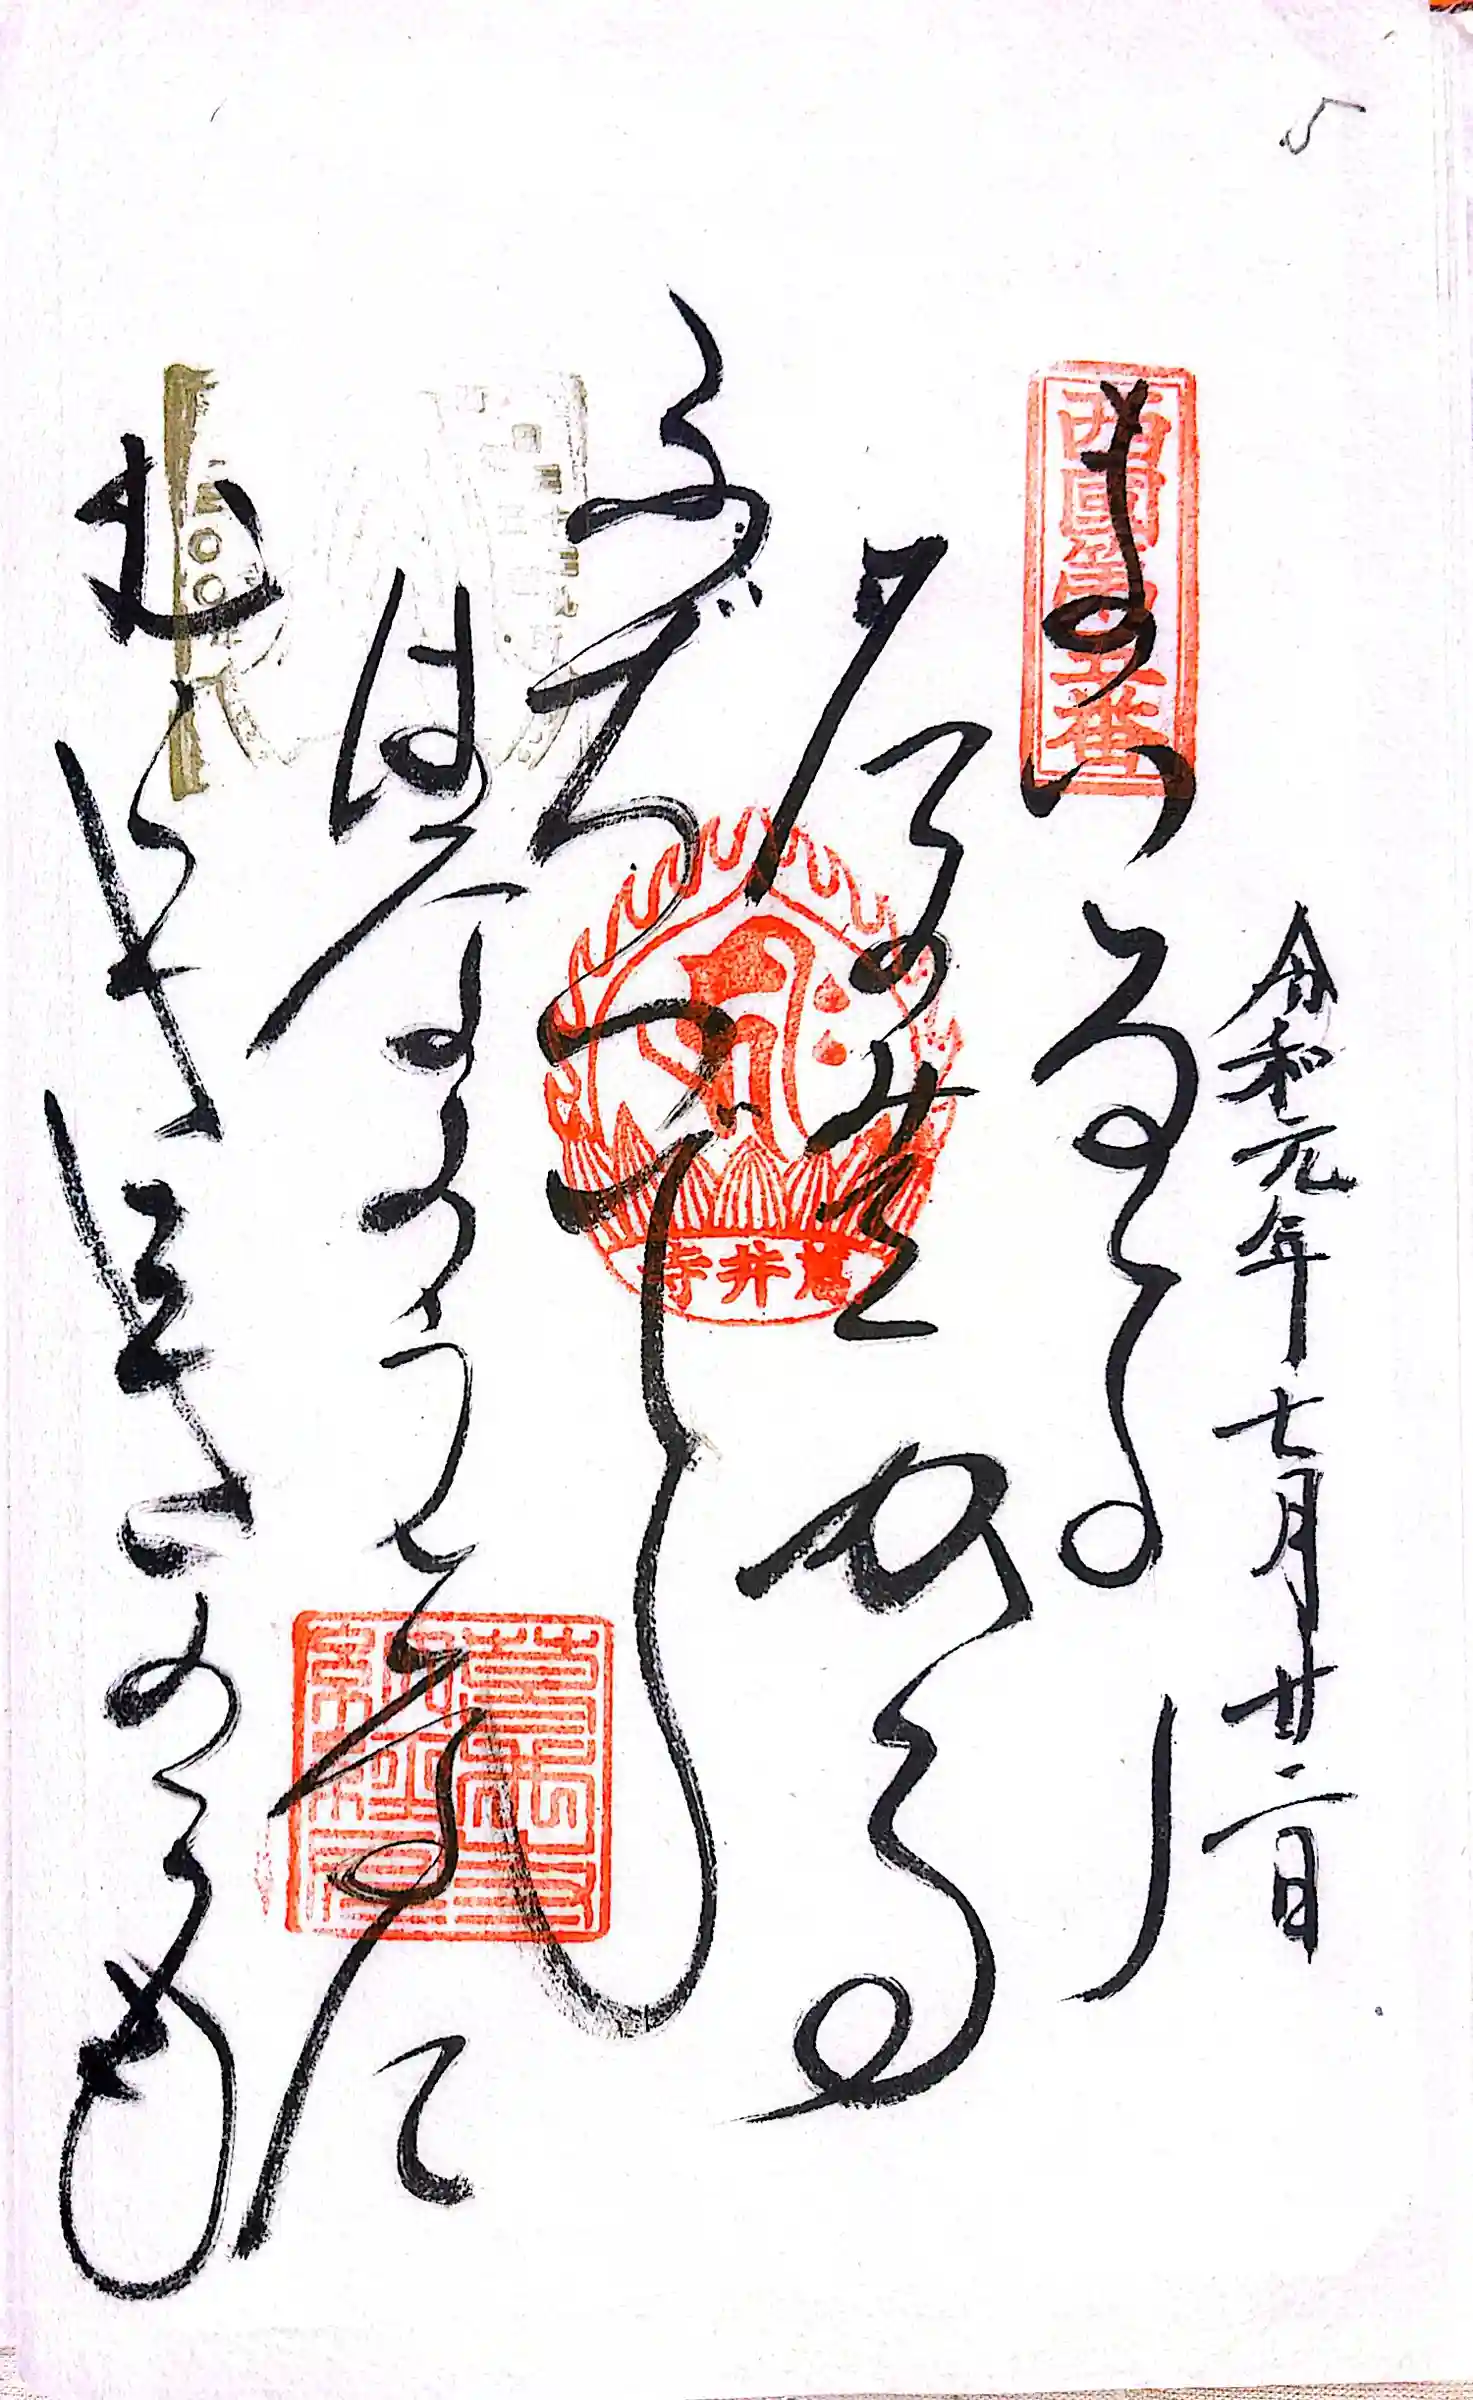 5
令和元年七月廿二日
西國第五番
まいるより
たのみをかくる
ふぢいでら
はなのうてなに
むらさきのくも
葛井寺